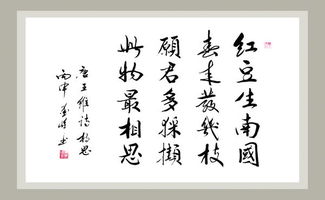 红豆生南國
春来發幾枝
願君多採擷
此物最相思
唐王維詩相思
丙申